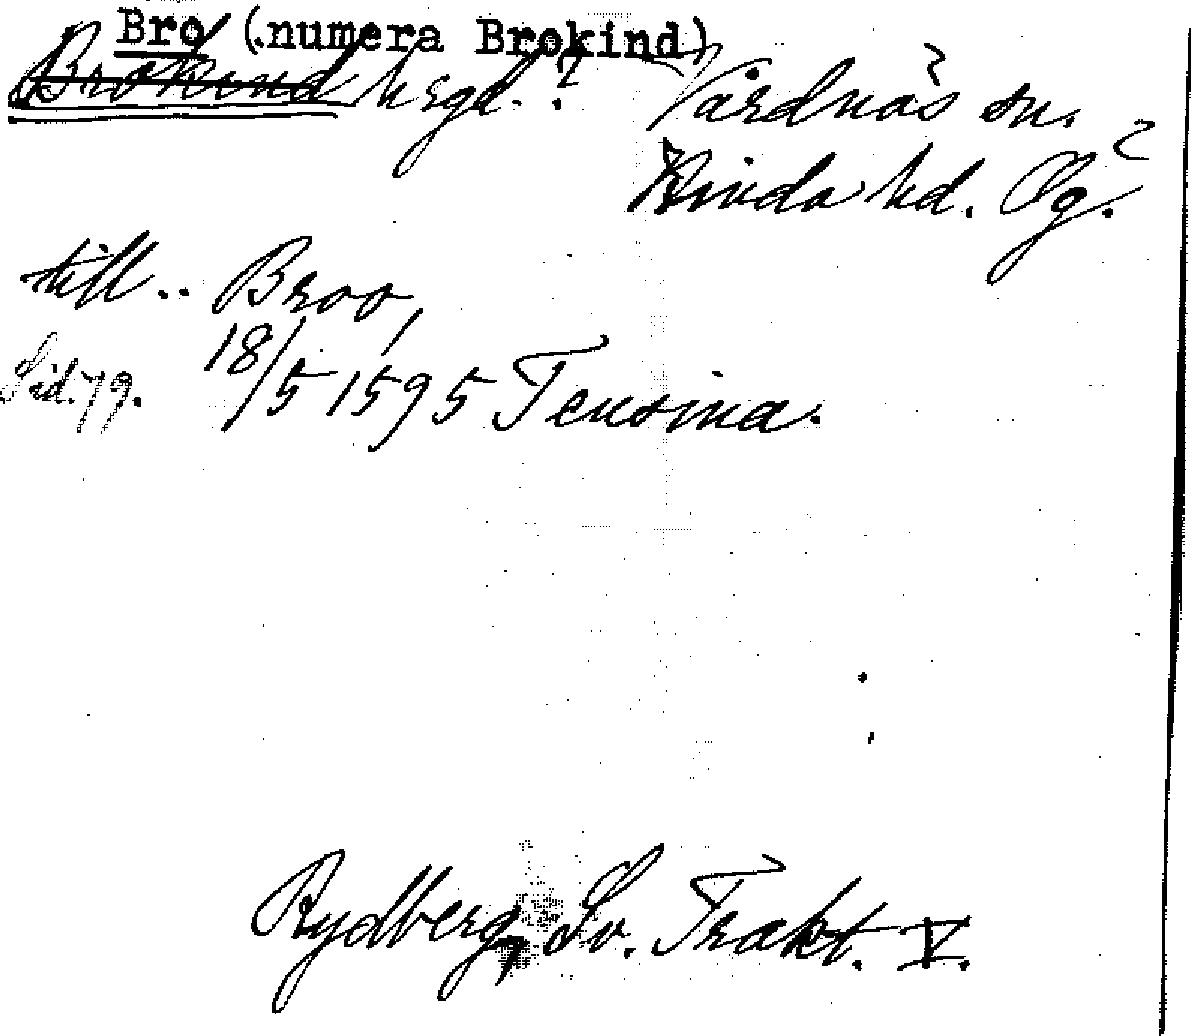 Bro (numera Brokind)
Brokind hrgd. ? Vårdnäs sn. ?
Kinda hd. Ög. ?
till .. Broo,
Sid. 79. 18/5 1595 Teusina.
Rydberg, Sv. Trakt. V.